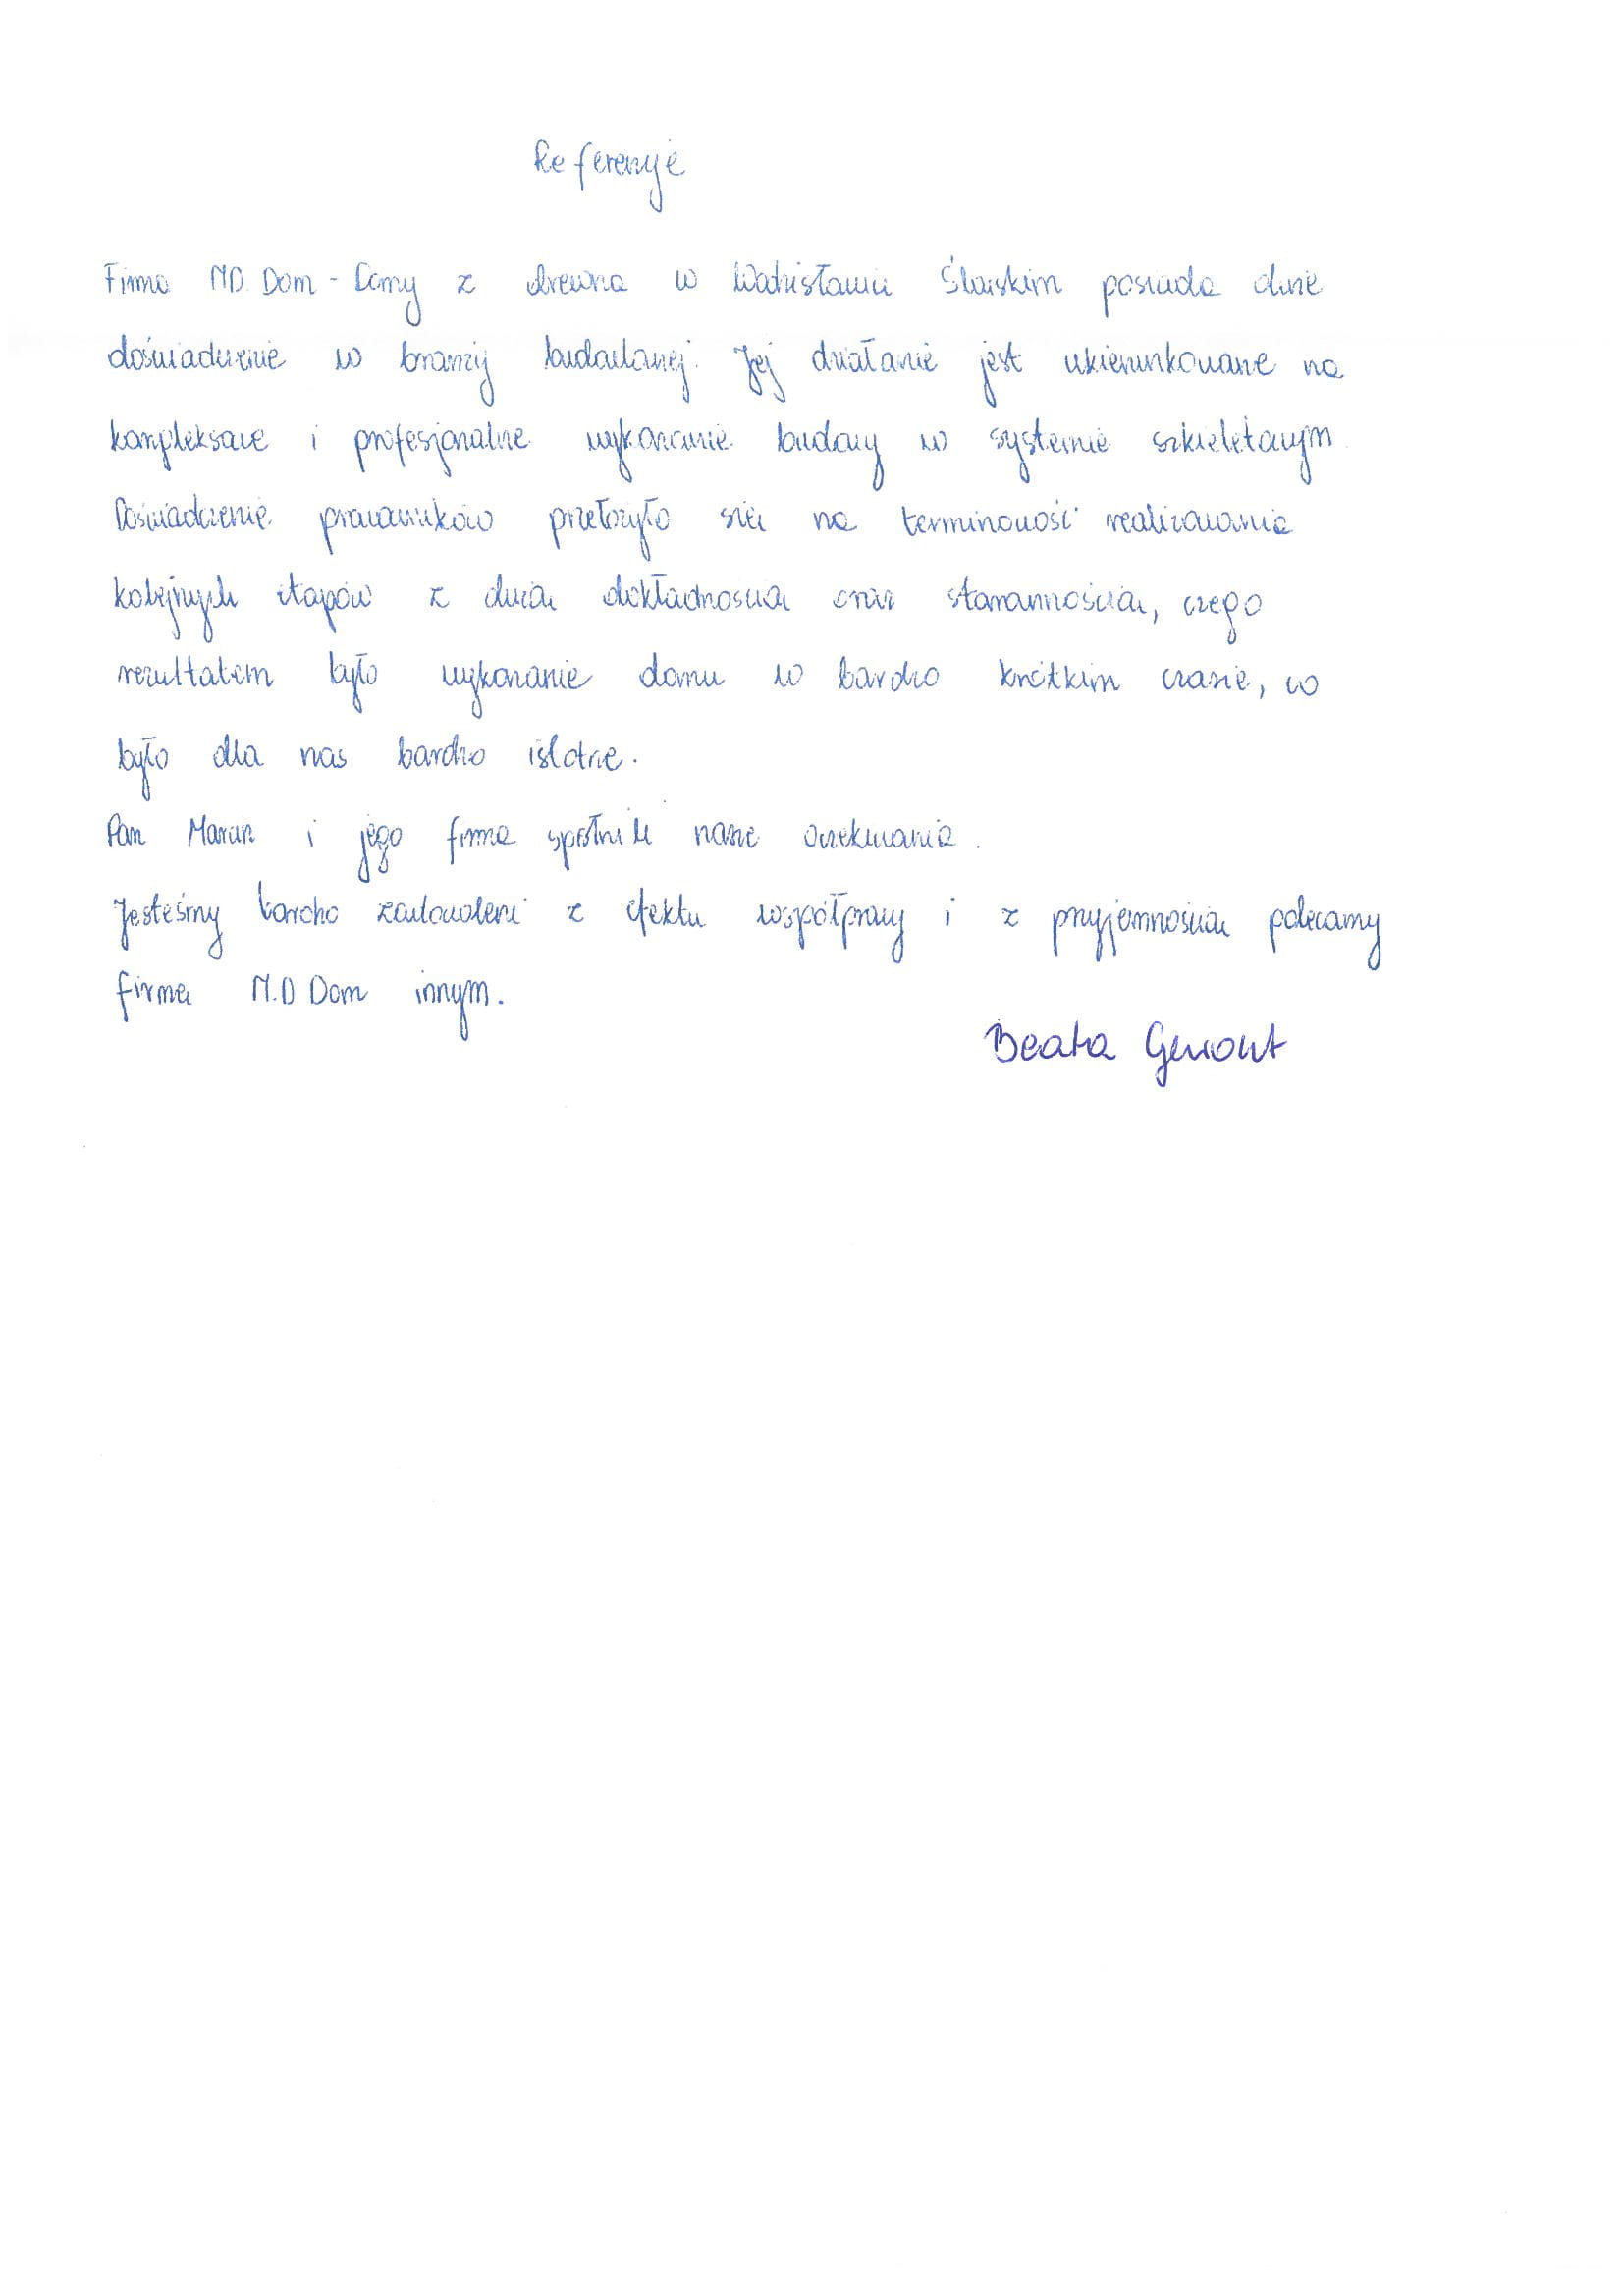 Referencje
Firma M.D. Dom - Domy z drewna w Wodzisławiu Śląskim posiada duże
doświadczenie w branży budowlanej. Jej działanie jest ukierunkowane na
kompleksowe i profesjonalne wykonanie budowy w systemie szkieletowym.
Doświadczenie pracowników przełożyło się na terminowość realizowania
kolejnych etapów z dużą dokładnością oraz starannością, czego
rezultatem było wykonanie domu w bardzo krótkim czasie, co
było dla nas bardzo istotne.
Pan Marcin i jego firma spełnili nasze oczekiwania.
Jesteśmy bardzo zadowoleni z efektu współpracy i z przyjemnością polecamy
firmę M.D Dom innym.
Beata